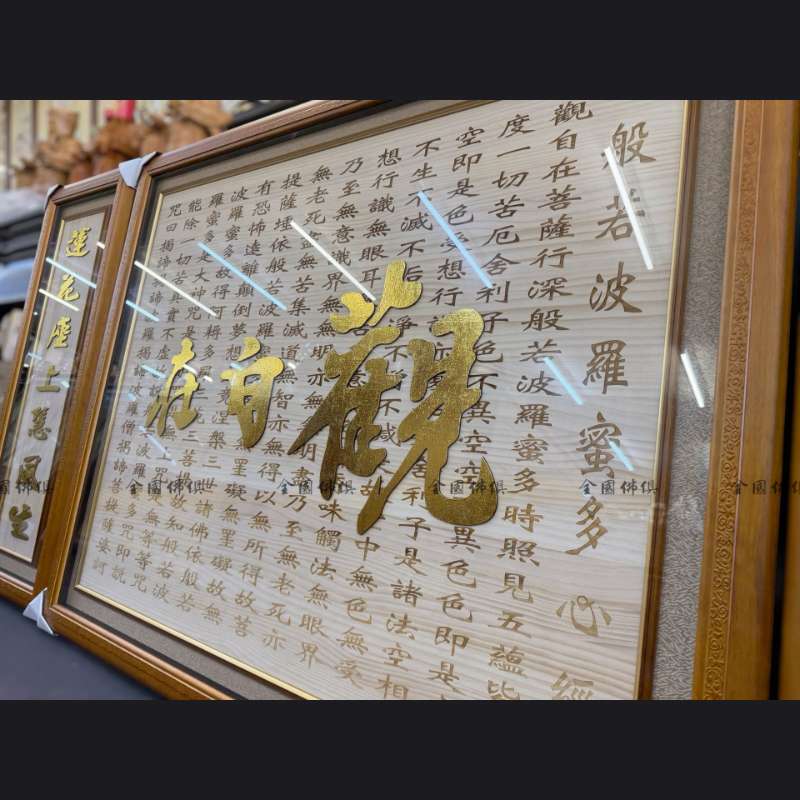 般若波羅蜜多心經
觀自在菩薩行深般若波羅蜜多時照見五蘊皆
度一切苦厄舍利子色不異空空異色色即是
空即是色受想行識亦舍利子是諸法空相
不生不滅不垢淨不增不減中無色無受
想行識無眼耳味觸法無眼界
乃至無意識界無無明亦無明盡乃至無老死亦
無老死盡無苦集滅道無智亦無得以無所得故菩
提薩埵依般若波羅無罣礙無罣礙故無
有恐怖遠離顛倒夢想涅槃三世諸佛依般若
波羅蜜多故得阿耨多羅三藐三菩提故知般若波
羅蜜多是大神咒是無上咒是無等等咒
能除一切苦真實不虛故說般若波羅蜜多咒即說
咒曰揭諦揭諦波羅揭諦波羅僧揭諦菩提薩婆訶
觀自在
蓮花座上慧風生
全國佛俱
全國佛俱
全國佛俱
全國佛俱
全國佛俱